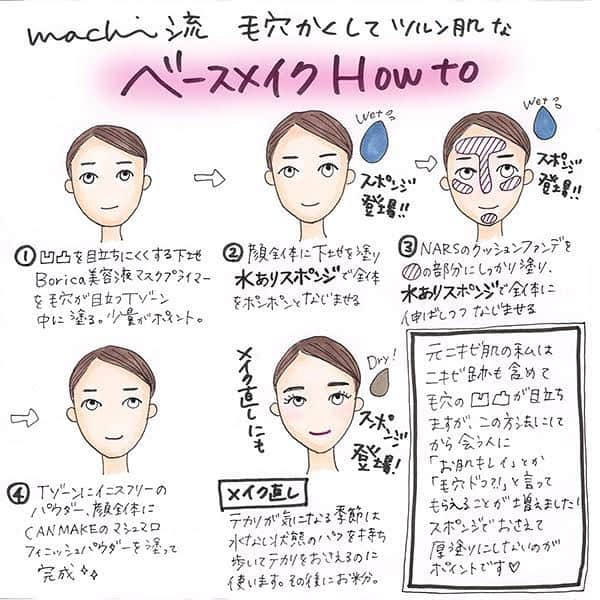 machi流 毛穴かくして ツルン肌な
ベースメイク How to
① 凹凸を目立ちにくくする下地
Borica美容液マスクプライマー
を毛穴が目立つTゾーン
中心に塗る。少量がポイント。
Wet
スポンジ
登場!!
② 顔全体に下地を塗り
水ありスポンジで全体
をポンポンとなじませる
Wet
スポンジ
登場!!
③ NARSのクッションファンデを
の部分にしっかり塗り、
水ありスポンジで全体に
伸ばしつつなじませる
④ Tゾーンにイニスフリーの
パウダー、顔全体に
CANMAKEのマシュマロ
フィニッシュパウダーを塗って
完成
メイク直しにも
Dry!
スポンジ
登場!
メイク直し
テカリが気になる季節は
水なし状態のパフを持ち
歩いてテカリをおさえるのに
使います。その後にお粉。
元ニキビ肌の私は
ニキビ跡も含めて
毛穴の凹凸が目立ち
ますが、この方法にして
から会う人に
「お肌キレイ」とか
「毛穴ドコ?!」と言って
もらえることが増えました!
スポンジでおさえて
厚塗りにしないのが
ポイントです♡